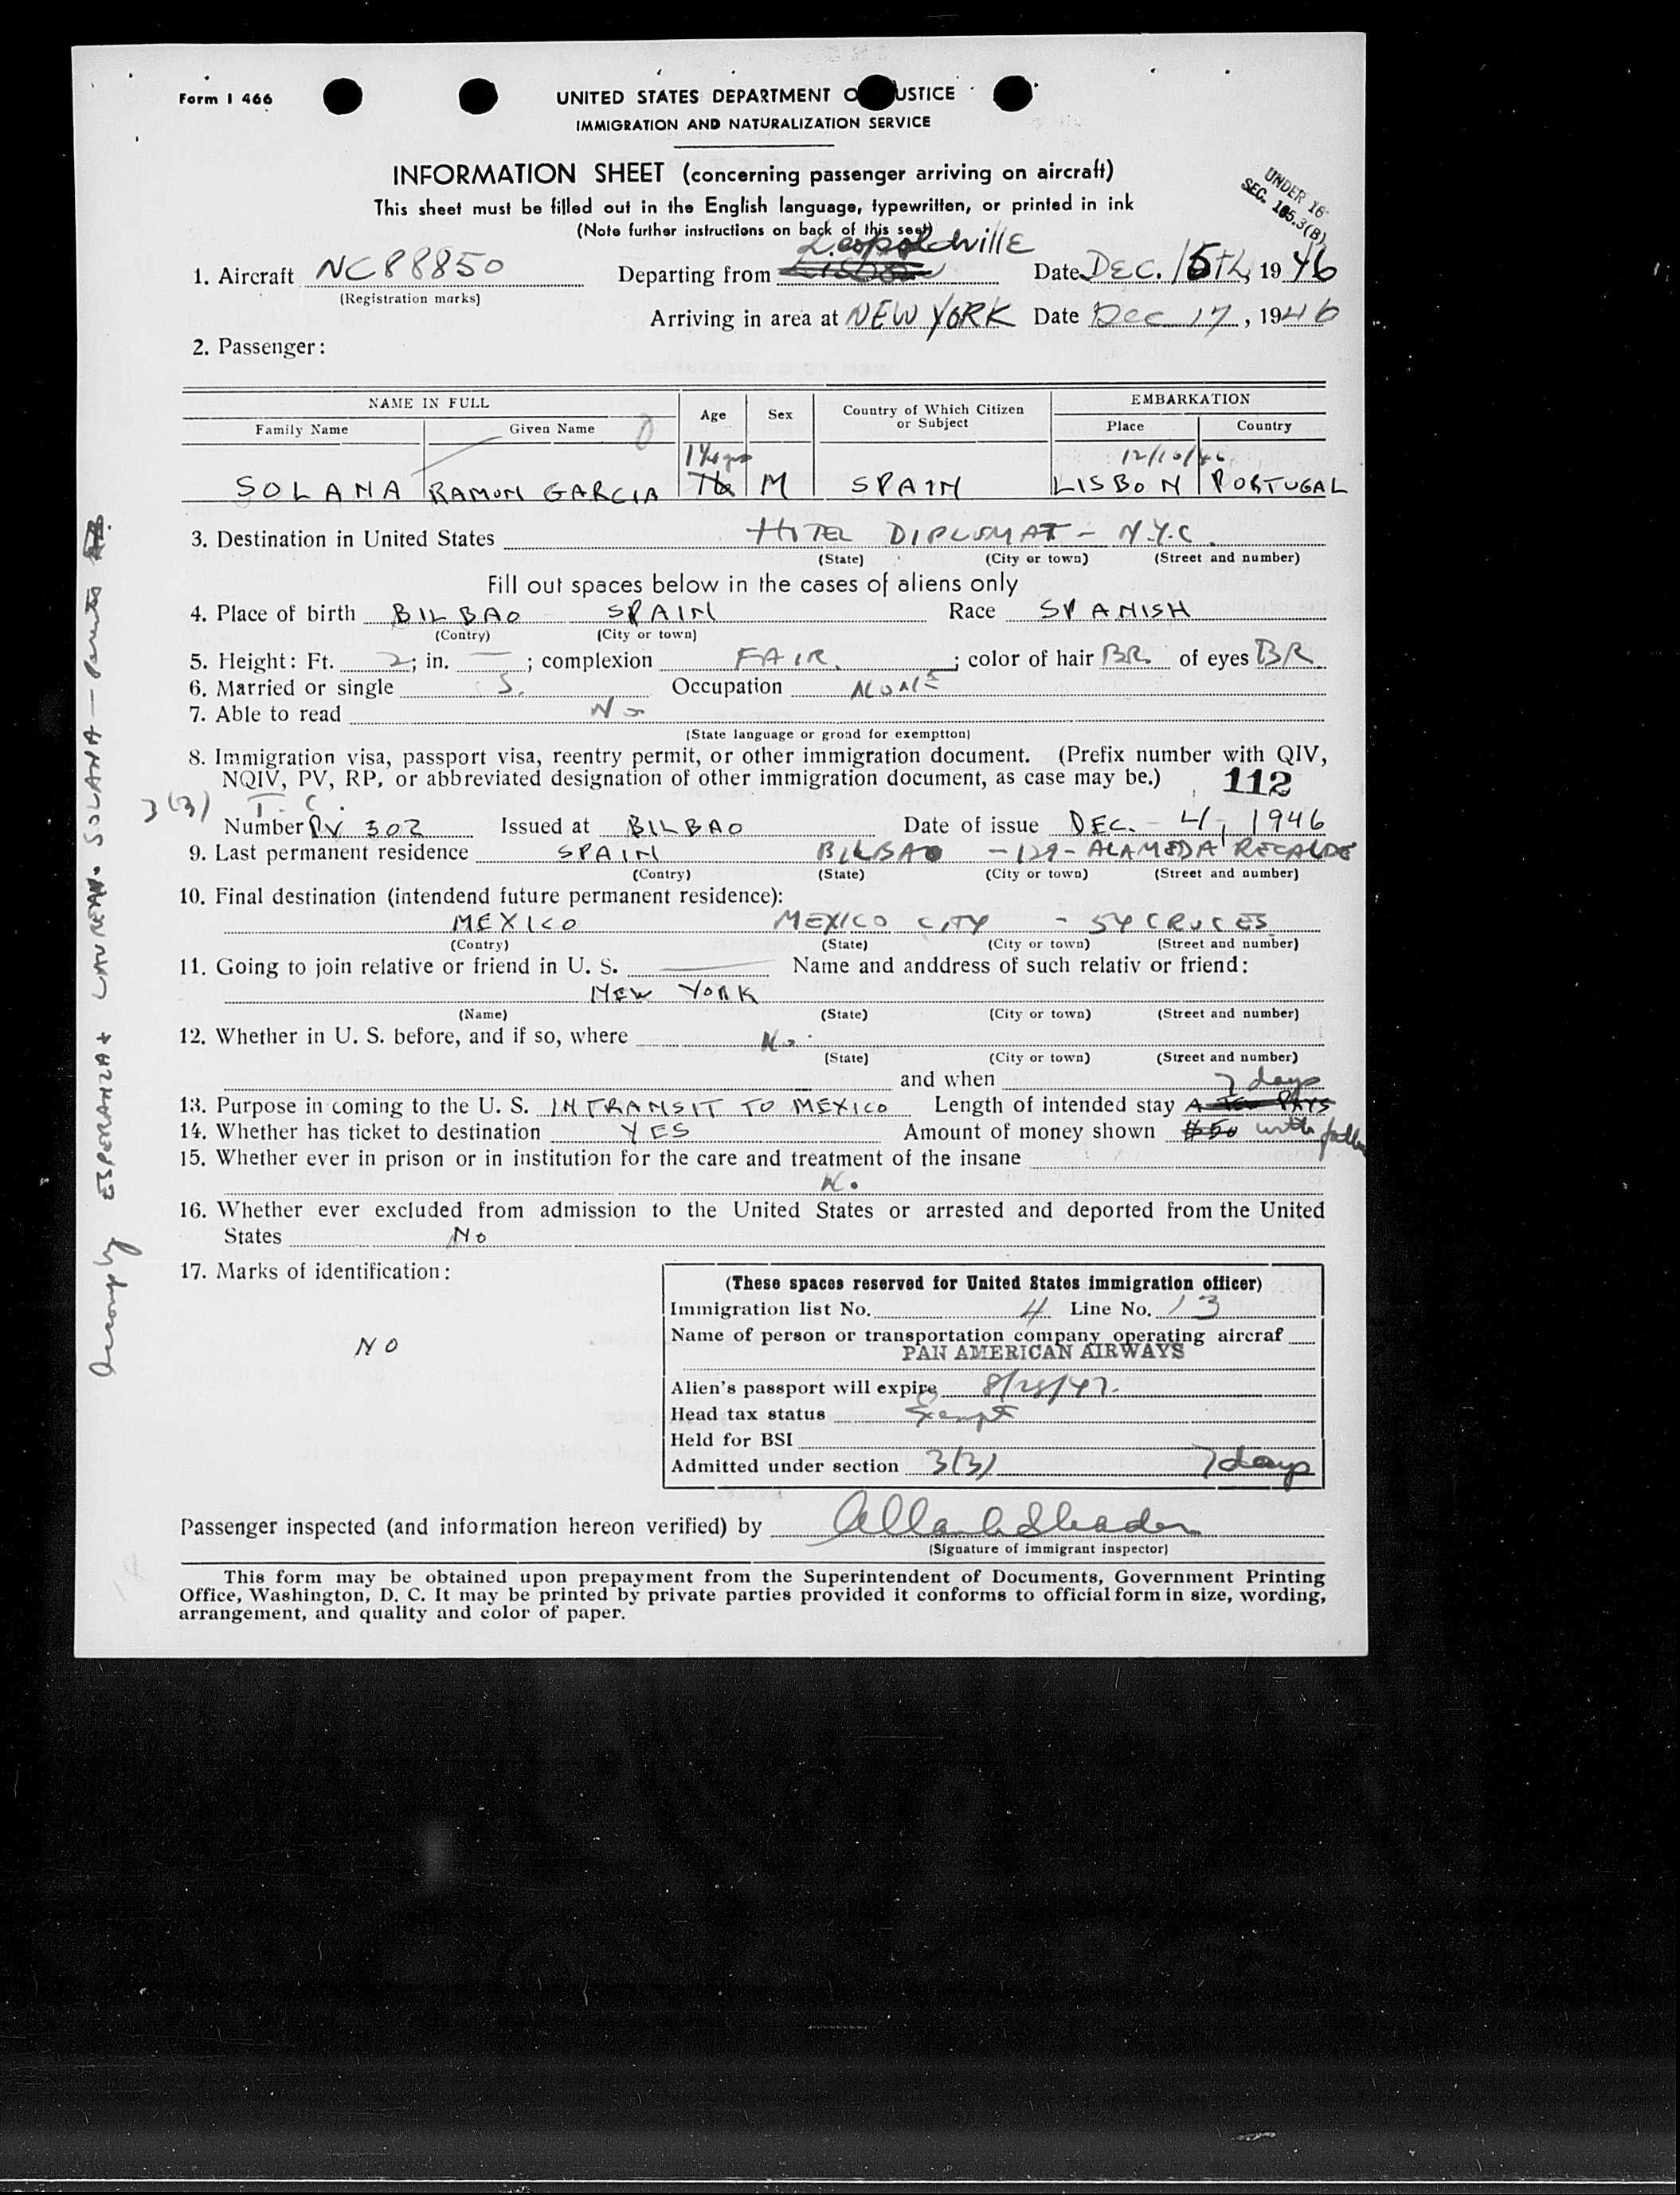 Form I 466
UNITED STATES DEPARTMENT O USTICE
IMMIGRATION AND NATURALIZATION SERVICE
INFORMATION SHEET (concerning passenger arriving on aircraft)
UNDER 16
SEC. 165.3(B)
This sheet must be filled out in the English language, typewritten, or printed in ink
(Note further instructions on back of this seet)
1. Aircraft NC88850 Departing from Lisbon Leopoldville Date DEC. 15th, 1946
(Registration marks)
Arriving in area at NEW YORK Date Dec 17, 1946
2. Passenger:
NAME IN FULL Age Sex Country of Which Citizen or Subject EMBARKATION
Family Name Given Name Place Country
12/10/46
SOLANA RAMON GARCIA M SPAIN LISBON PORTUGAL
3. Destination in United States HOTEL DIPLOMAT - N.Y.C.
(State) (City or town) (Street and number)
Fill out spaces below in the cases of aliens only
4. Place of birth BILBAO SPAIN Race SPANISH
(Contry) (City or town)
5. Height: Ft. 2; in. —; complexion FAIR. ; color of hair BR. of eyes BR.
6. Married or single S. Occupation NONE
7. Able to read No
(State language or groad for exemptton)
8. Immigration visa, passport visa, reentry permit, or other immigration document. (Prefix number with QIV,
NQIV, PV, RP, or abbreviated designation of other immigration document, as case may be.) 112
3(3) T.C.
Number PV 302 Issued at BILBAO Date of issue DEC. - 4, 1946
9. Last permanent residence SPAIN BILBAO - 129 - ALAMEDA RECALDE
(Contry) (State) (City or town) (Street and number)
10. Final destination (intendend future permanent residence):
MEXICO MEXICO CITY - 54 CRUCES
(Contry) (State) (City or town) (Street and number)
11. Going to join relative or friend in U. S. — Name and anddress of such relativ or friend:
NEW YORK
(Name) (State) (City or town) (Street and number)
12. Whether in U. S. before, and if so, where No.
(State) (City or town) (Street and number)
and when
7 days
13. Purpose in coming to the U. S. IN TRANSIT TO MEXICO Length of intended stay A FEW DAYS
14. Whether has ticket to destination YES Amount of money shown $50 with father
15. Whether ever in prison or in institution for the care and treatment of the insane
No
16. Whether ever excluded from admission to the United States or arrested and deported from the United
States No
17. Marks of identification:
NO
(These spaces reserved for United States immigration officer)
Immigration list No. 4 Line No. 13
Name of person or transportation company operating aircraf
PAN AMERICAN AIRWAYS
Alien's passport will expire 8/28/47.
Head tax status Exempt
Held for BSI
Admitted under section 3(3) 7 days
Passenger inspected (and information hereon verified) by
(Signature of immigrant inspector)
This form may be obtained upon prepayment from the Superintendent of Documents, Government Printing
Office, Washington, D. C. It may be printed by private parties provided it conforms to official form in size, wording,
arrangement, and quality and color of paper.
Accomp by ESPERANZA + LAUREAN. SOLANA — parents